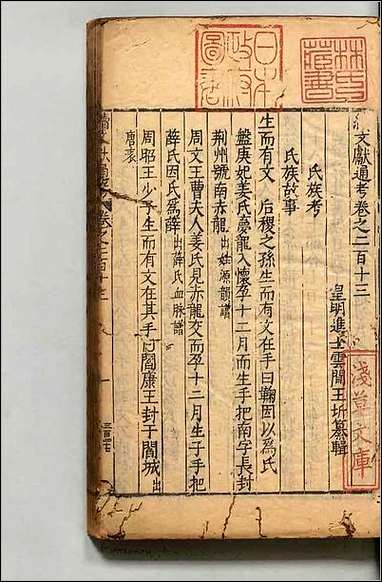 文獻通考卷之二百十三
皇明進士雲間王圻纂輯
氏族考
氏族故事
生而有文 后稷之孫生而有文在手曰鞠因以為氏
盤庚妃姜氏夢龍入懷孕十二月而生手把南字長封
荊州號南赤龍出姓源韻譜
周文王曹夫人姜氏見赤龍交而孕十二月生子手把
薛氏因氏為薛出薛氏血脉譜
周昭王少子生而有文在其手曰閻康王封于閻城出
唐表
日本政府圖書
林氏藏書
淺草文庫